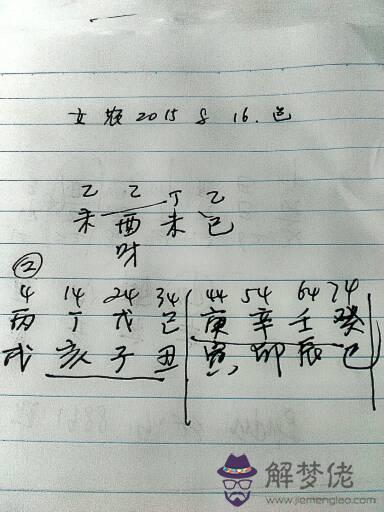 女 2015 8 16. 巳
乙 乙 丁 乙
未 酉 未 巳
②
4 14 24 34 44 54 64 74
丙 丁 戊 己 庚 辛 壬 癸
戌 亥 子 丑 寅 卯 辰 巳
解梦佬
www.jiemenglao.com